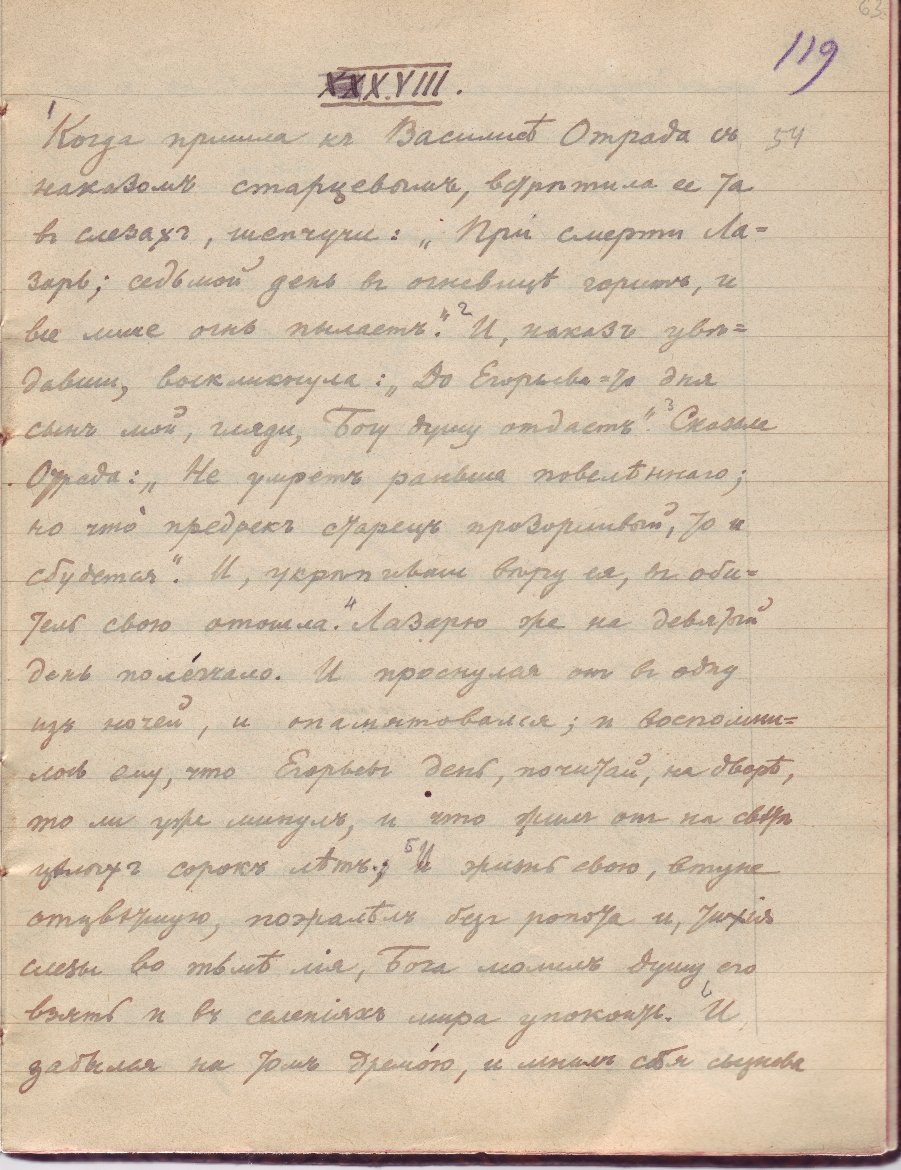 63
119
XXXVIII.
54
¹Когда пришла къ Василисѣ Отрада съ
наказомъ старцевымъ, встрѣтила ее та
въ слезахъ, шепчучи: „При смерти Ла=
зарь; седьмой день въ огневицѣ горитъ, и
все лише огнь пылаетъ“.² И, наказъ увѣ=
давши, воскликнула: „До Егорьева=то дня
сынъ мой, гляди, Богу душу отдастъ“.³ Сказала
Отрада: „Не умретъ раньше повелѣннаго;
но что́ предрекъ старецъ прозорливый, то и
сбудется“. И, укрѣпивши вѣру ея, въ оби=
тель свою отошла.⁴ Лазарю же на девятый
день поле́гчало. И проснулся онъ въ одну
изъ ночей, и опамятовался; и воспомни=
лось ему, что Егорьевъ день, почитай, на дворѣ,
то ли уже минулъ, и что жилъ онъ на свѣтѣ
цѣлыхъ сорокъ лѣтъ.; ⁵И жизнь свою, втуне
отцвѣтшую, пожалѣлъ безъ ропота и, тихія
слезы во тьмѣ лія, Бога молилъ душу его
взять и въ селеніяхъ мира упокоить. ⁶И
забылся на томъ дремо́ю, и мнилъ себя сызнова